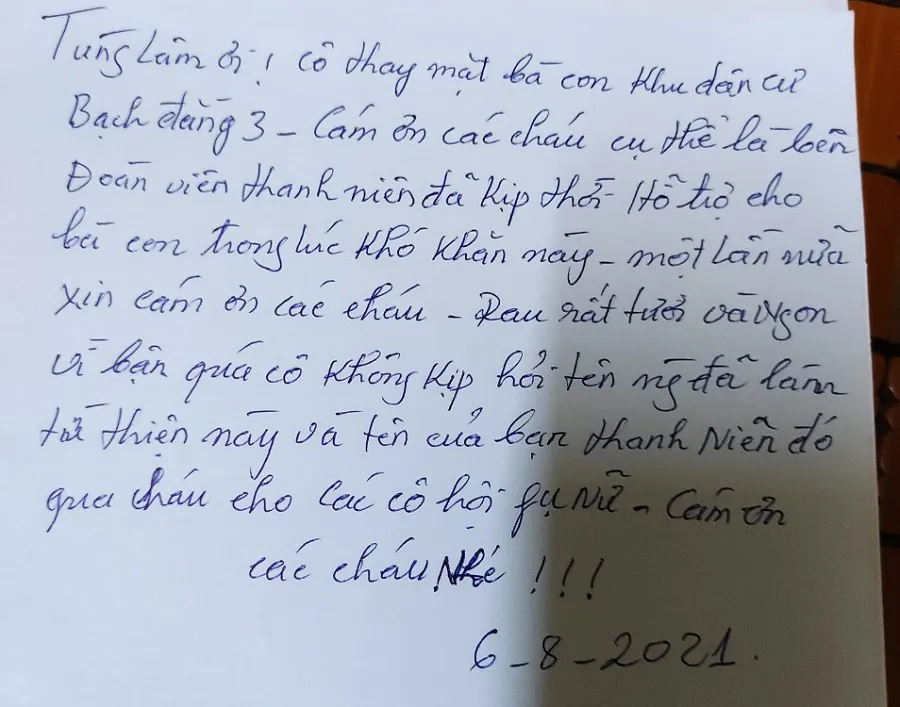 Tùng Lâm ơi! cô thay mặt bà con khu dân cư
Bạch đằng 3 - Cám ơn các cháu cụ thể là bên
Đoàn viên thanh niên đã kịp thời Hỗ trợ cho
bà con trong lúc khó khăn này - một lần nữa
xin cám ơn các cháu - Rau rất tươi và Ngon
vì bận quá cô không kịp hỏi tên ng đã làm
từ thiện này và tên của bạn thanh Niên đó
qua cháu cho các cô hội fụ Nữ - Cám ơn
các cháu Nhé !!!
6-8-2021.